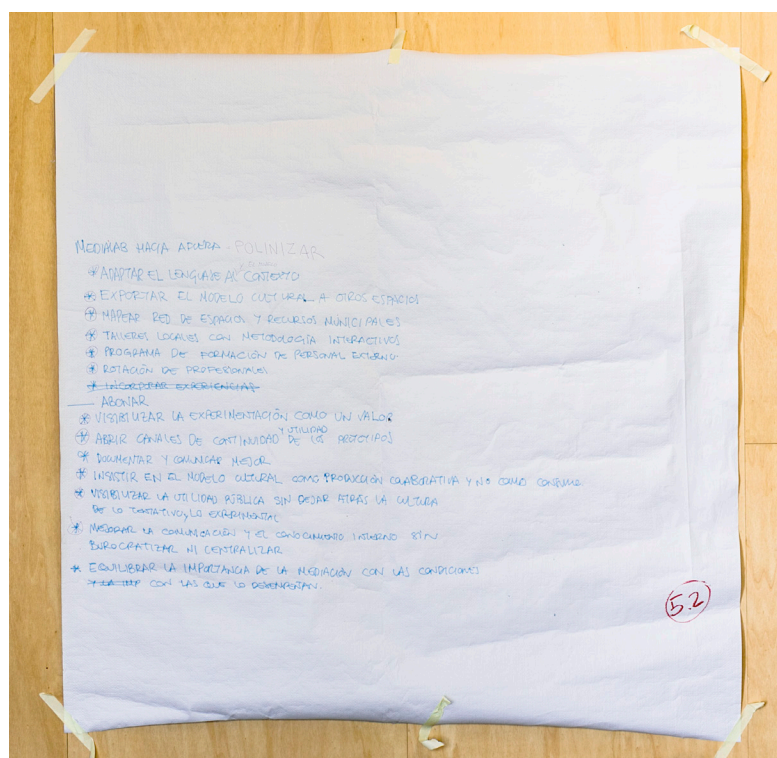 MEDIALAB HACIA AFUERA - POLINIZAR
* ADAPTAR EL LENGUAJE AL CONTEXTO
* EXPORTAR EL MODELO CULTURAL A OTROS ESPACIOS
* MAPEAR RED DE ESPACIOS Y RECURSOS MUNICIPALES
* TALLERES LOCALES CON METODOLOGÍA INTERACTIVOS
* PROGRAMA DE FORMACIÓN DE PERSONAL EXTERNO
* ROTACIÓN DE PROFESIONALES
* INCORPORAR EXPERIENCIAS
ABONAR
* VISIBILIZAR LA EXPERIMENTACIÓN COMO UN VALOR
Y UTILIDAD
* ABRIR CANALES DE CONTINUIDAD DE LOS PROTOTIPOS
* DOCUMENTAR Y COMUNICAR MEJOR
* INSISTIR EN EL MODELO CULTURAL COMO PRODUCCIÓN COLABORATIVA Y NO COMO CONSUMO
* VISIBILIZAR LA UTILIDAD PÚBLICA SIN DEJAR ATRÁS LA CULTURA
DE LO TENTATIVO Y LO EXPERIMENTAL
* MEJORAR LA COMUNICACIÓN Y EL CONOCIMIENTO INTERNO SIN
BUROCRATIZAR NI CENTRALIZAR
* EQUILIBRAR LA IMPORTANCIA DE LA MEDIACIÓN CON LAS CONDICIONES
* LA IMP CON LAS QUE LO DESEMPEÑAN.
5.2